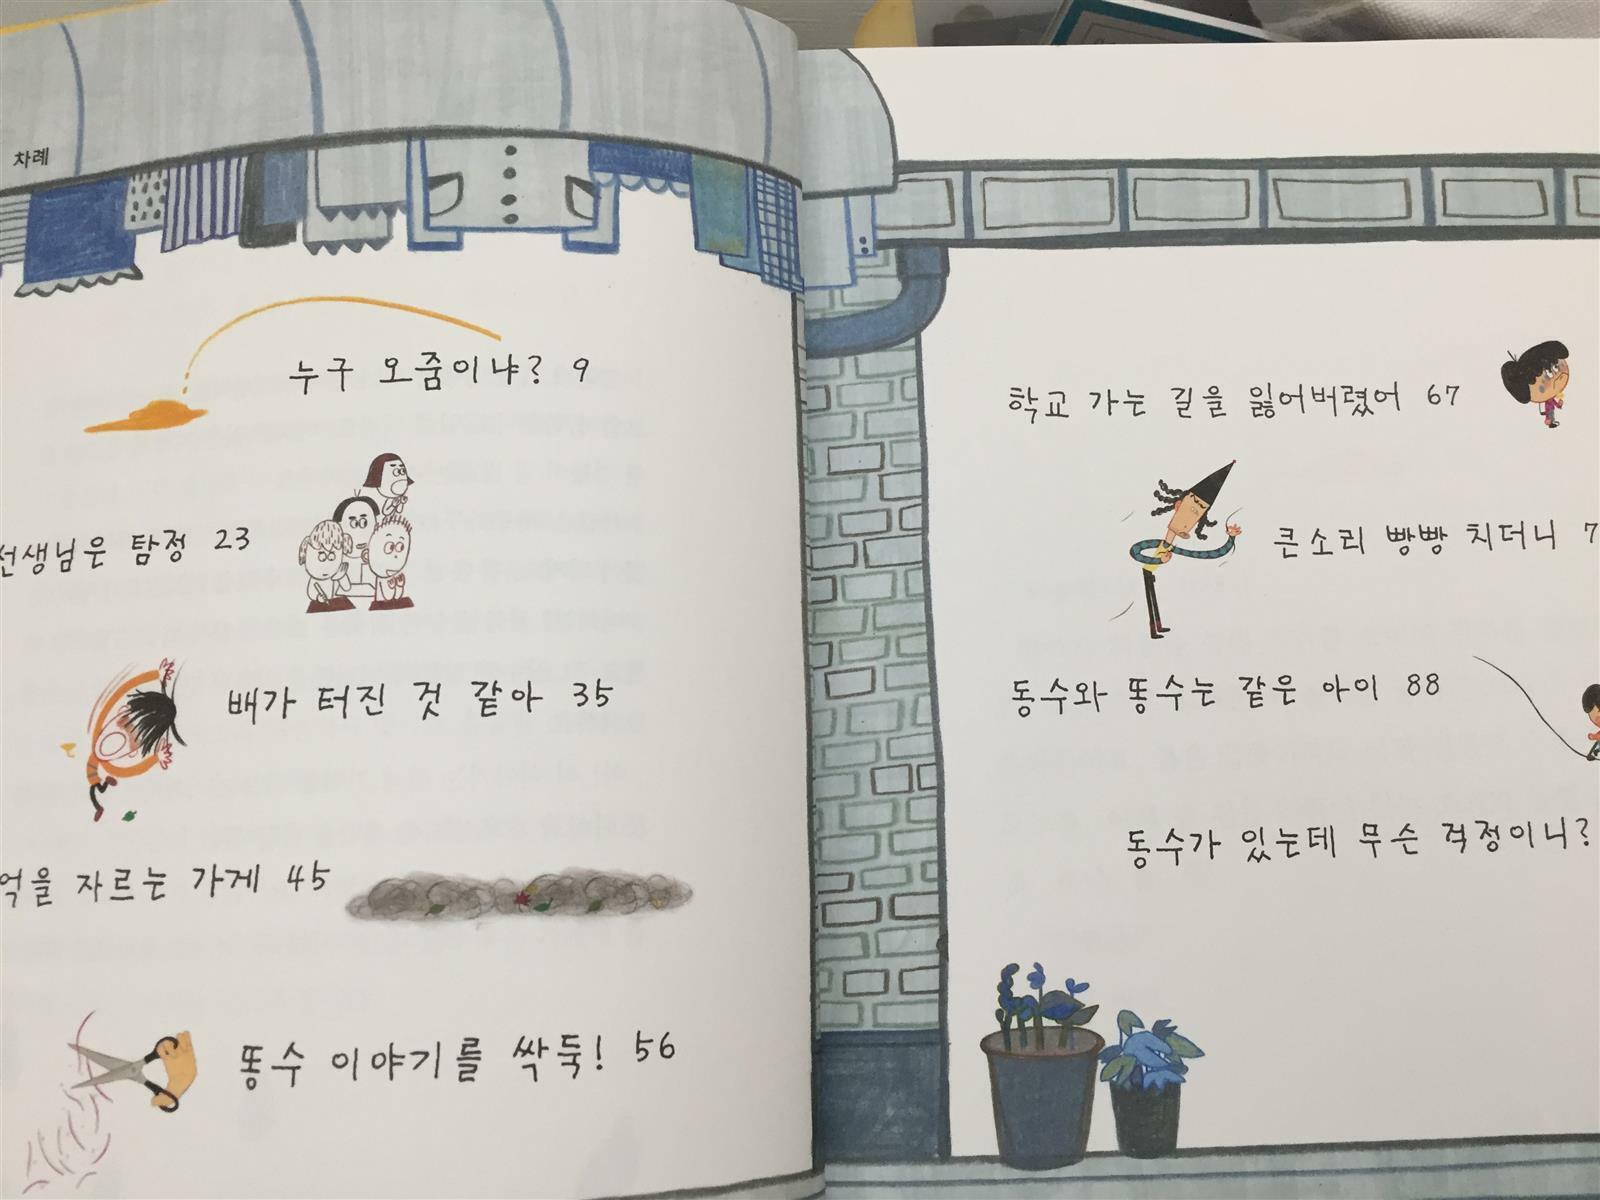 차례
누구 오줌이냐? 9
탐정 23
배가 터진 것 같아 35
자르는 가게 45
똥수 이야기를 싹둑! 56
학교 가는 길을 잃어버렸어 67
큰소리 빵빵 치더니 7
동수와 똥수는 같은 아이 88
동수가 있는데 무슨 걱정이니?